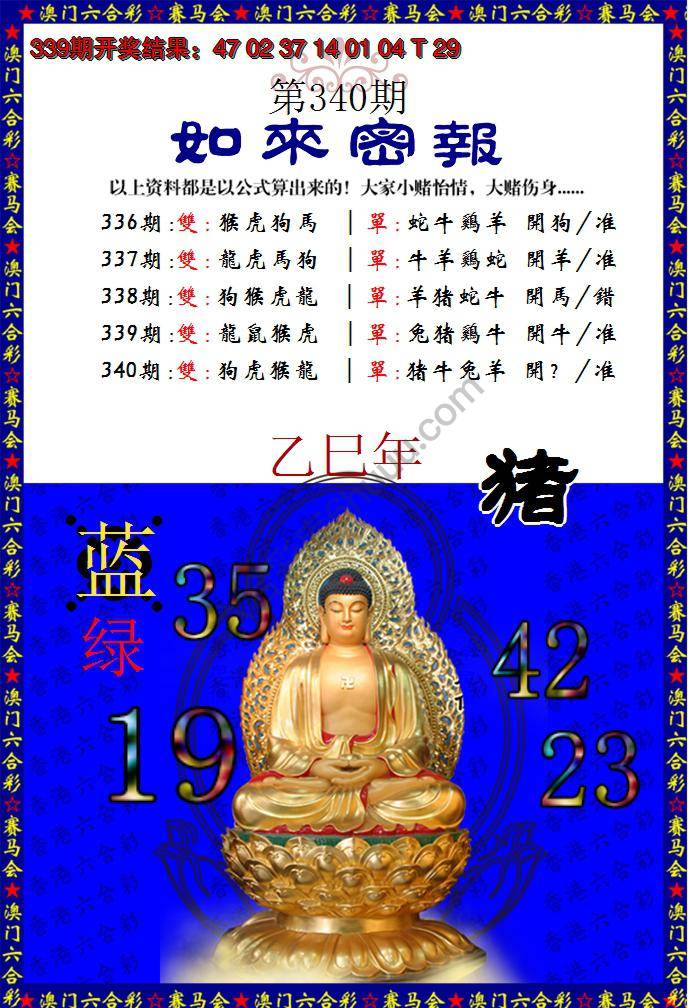 ★澳门六合彩☆赛马会★澳门六合彩☆赛马会★澳门六合彩☆赛马会★
339期开奖结果：47 02 37 14 01 04 T 29
第340期
如來密報
以上资料都是以公式算出来的！大家小赌怡情，大赌伤身......
336期:雙:猴虎狗馬 |單:蛇牛鷄羊 開狗/准
337期:雙:龍虎馬狗 |單:牛羊鷄蛇 開羊/准
338期:雙:狗猴虎龍 |單:羊猪蛇牛 開馬/錯
339期:雙:龍鼠猴虎 |單:兔猪鷄牛 開牛/准
340期:雙:狗虎猴龍 |單:猪牛兔羊 開？/准
乙巳年
猪
蓝
绿
35
42
19
23
香港六合彩
★澳门六合彩☆赛马会★澳门六合彩☆赛马会★澳门六合彩☆赛马会★